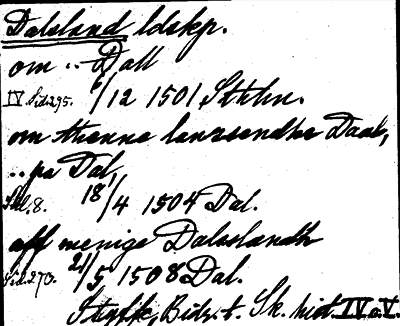 Dalsland ldskp.
om .. Dall
IV. Sid. 295. 6/12 1501 Sthlm.
om thenne landzendhe Daal,
.. pa Dal,
Sid. 8. 18/4 1504 Dal.
aff menige Dalsslandh
Sid. 270. 21/5 1508 Dal.
Styffe, Bidr. t. Sk. hist. IV o. V.